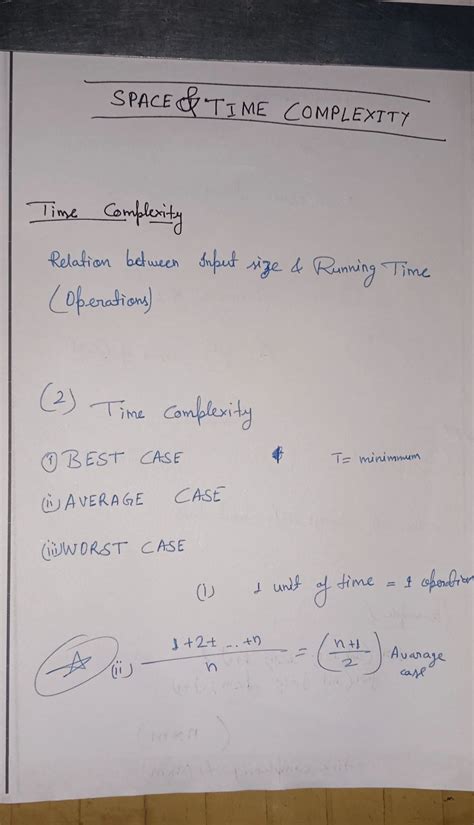 SPACE & TIME COMPLEXITY
Time Complexity
Relation between Input size & Running Time
(Operations)
(2) Time Complexity
(i) BEST CASE T= minimmum
(ii) AVERAGE CASE
(iii) WORST CASE
(i) 1 unit of time = 1 operation
(ii) 1+2+ ... +n / n = (n+1 / 2) Avarage case